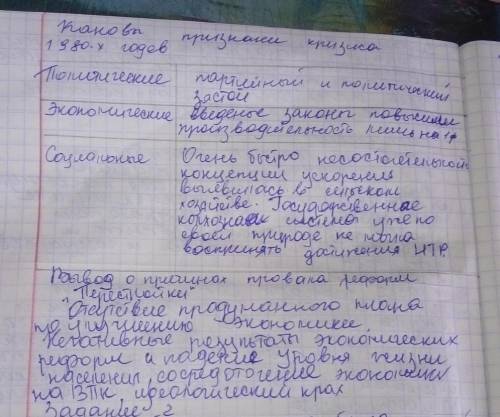 Каковы признаки кризиса
1980-х годов
Политические партийный и политический
застой
Экономические введеные законы повысили
производительность лишь на
Социальные Очень быстро несостоятельность
концепции ускорения
выявилась в сельском
хозяйстве. Государственные
системы уже по
своей природе не могла
воспринять достижения НТР.
Вывод о причинах провала реформ
"Перестройки"
Отсутствие продуманного плана
по улучшению экономики.
Негативные результаты экономических
реформ и падение уровня жизни
населения, сосредоточение экономики
на ВПК, идеологический крах
Задание 2